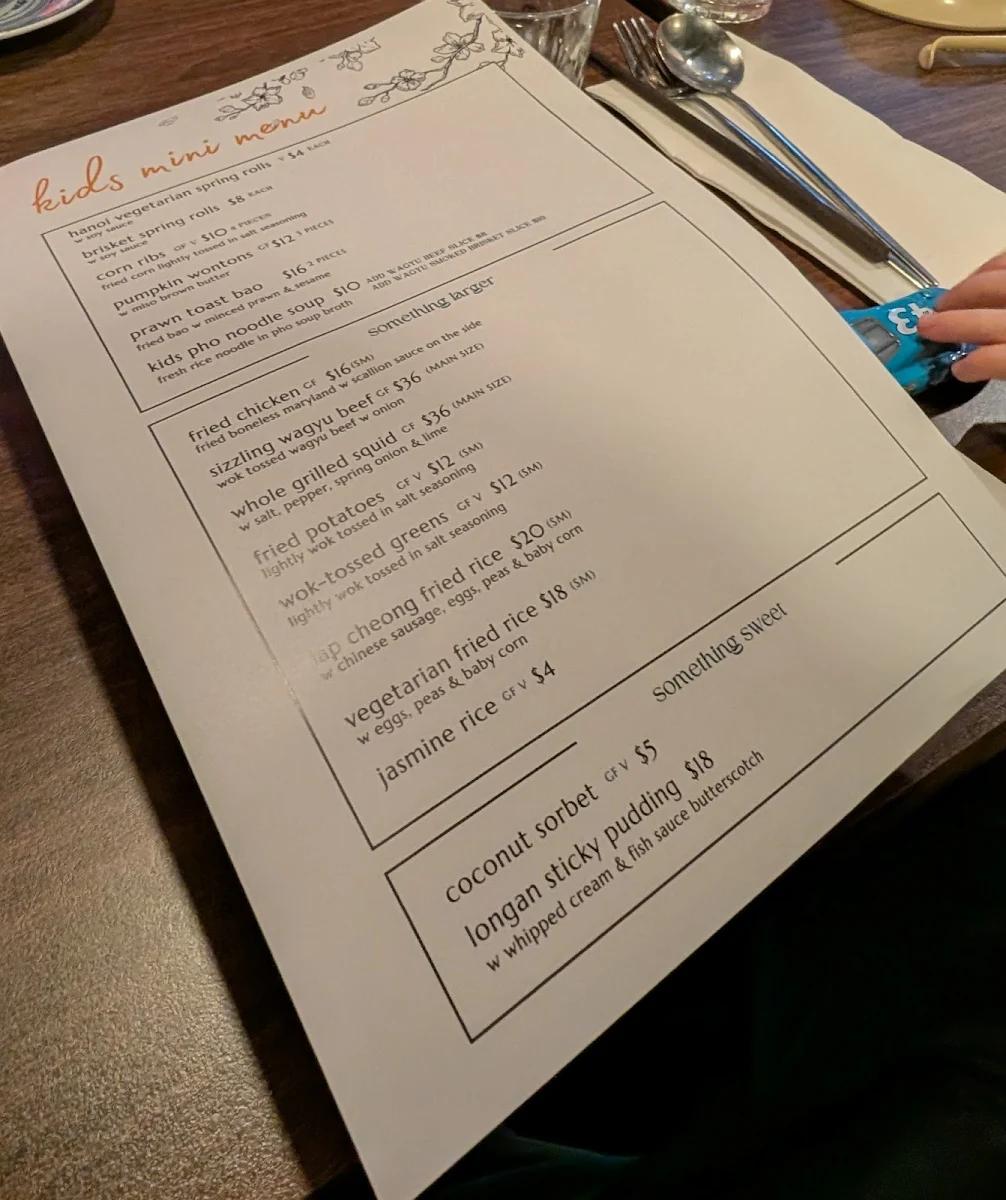 kids mini menu
hanoi vegetarian spring rolls V $4 EACH
w soy sauce
brisket spring rolls $8 EACH
w soy sauce
corn ribs GF V $10 4 PIECES
fried corn lightly tossed in salt seasoning
pumpkin wontons GF $12 3 PIECES
w miso brown butter
prawn toast bao $16 2 PIECES
fried bao w minced prawn & sesame
kids pho noodle soup $10 ADD WAGYU BEEF SLICE $8
ADD WAGYU SMOKED BRISKET SLICE $10
fresh rice noodle in pho soup broth
something larger
fried chicken GF $16 (SM)
fried boneless maryland w scallion sauce on the side
sizzling wagyu beef GF $36 (MAIN SIZE)
wok tossed wagyu beef w onion
whole grilled squid GF $36 (MAIN SIZE)
w salt, pepper, spring onion & lime
fried potatoes GF V $12 (SM)
lightly wok tossed in salt seasoning
wok-tossed greens GF V $12 (SM)
lightly wok tossed in salt seasoning
lap cheong fried rice $20 (SM)
w chinese sausage, eggs, peas & baby corn
vegetarian fried rice $18 (SM)
w eggs, peas & baby corn
jasmine rice GF V $4
something sweet
coconut sorbet GF V $5
longan sticky pudding $18
w whipped cream & fish sauce butterscotch
43